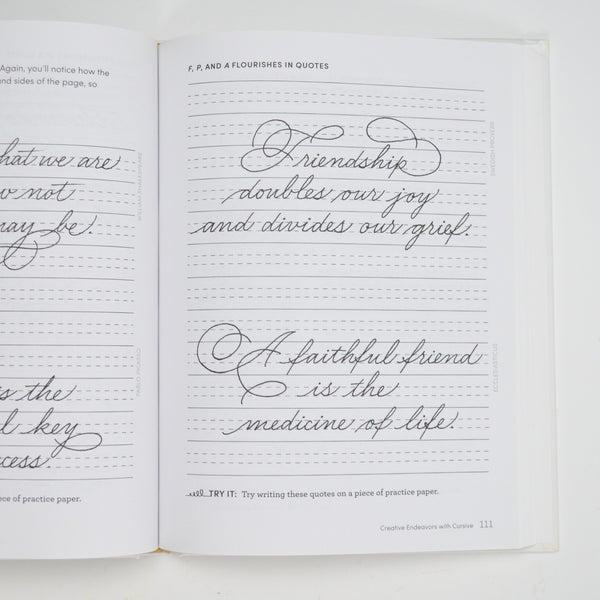 Again, you'll notice how the
and sides of the page, so
hat we are
w not
may be.
WILLIAM SHAKESPEARE
is the
l key
cess.
PABLO PICASSO
ece of practice paper.
F, P, AND A FLOURISHES IN QUOTES
Friendship
doubles our joy
and divides our grief.
SWEDISH PROVERB
A faithful friend
is the
medicine of life.
ECCLESIASTICUS
TRY IT: Try writing these quotes on a piece of practice paper.
Creative Endeavors with Cursive 111